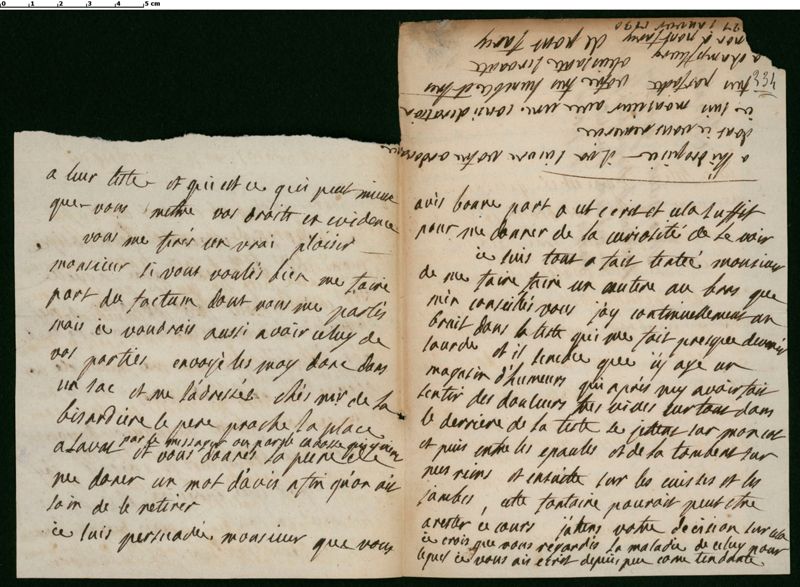 a leur teste et qui est ce qui peut mieux
que vous mettre vos droits en evidence
vous me ferés un vray plaisir
monsieur si vous voulés bien me faire
part du factum dont vous me parlés
mais ie voudrois aussi avoir celuy de
vos parties envoyé les moy donc dans
un sac et me l'adressés chés mr de la
bisardiere le pere proche la place
a Laval par le messager ou par
et vous donres la peine de
me doner un mot d'avis afin qu'on ait
soin de le retirer
ie suis persuadée monsieur que vous
avés bonne part a cet ecrit et cela suffit
pour me donner de la curiosité de le voir
ie suis tout a fait tentée monsieur
de me faire faire un cautere au bras que
m'en conseillés vous j'ay continuellement un
bruit dans la teste qui me fait presque devenir
sourde et il semble que j'y aye un
magasin d'humeurs qui après m'y avoir fait
sentir des douleurs tres vives surtout dans
le derriere de la teste se jettent sur mon cou
et puis entre les epaules et de la tombent sur
mes reins et ensuite sur les cuisses et les
jambes, cette fontaine pourait peut etre
arester ce cours j'atens votre decision sur cela
ie crois que vous regardés la maladie de celuy pour
lequel ie vous ais ecrit depuis peu come
a
dont ie vous remercie
ie suis monsieur avec une consideration
tres parfaite votre tres humble et tres
obeissante servante
a champfleury
de pont farcy
27 janvier 1730
334
0 1 2 3 4 5 cm